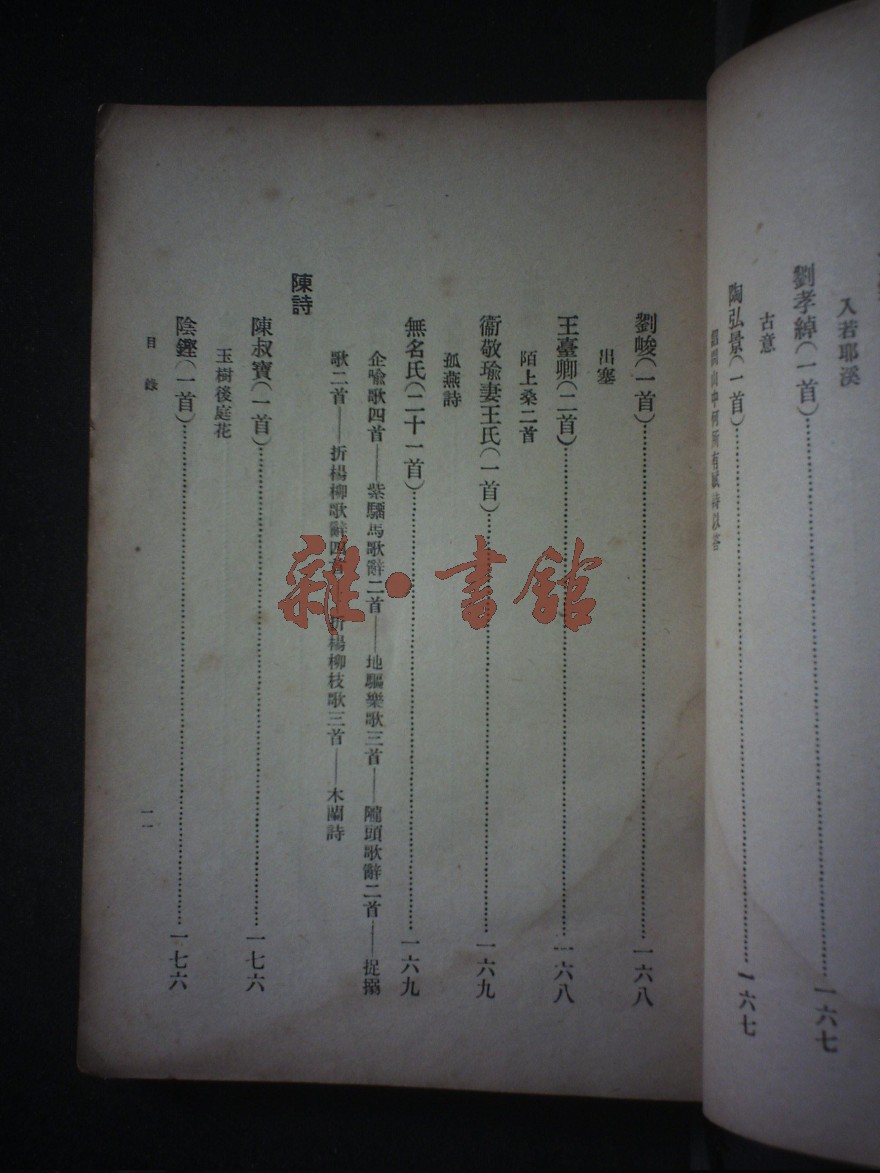 入若耶溪
劉孝綽(一首)……一六七
古意
陶弘景(一首)……一六七
詔問山中何所有賦詩以答
劉峻(一首)……一六八
出塞
王臺卿(二首)……一六八
陌上桑二首
衞敬瑜妻王氏(一首)……一六九
孤燕詩
無名氏(二十一首)……一六九
企喻歌四首——紫騮馬歌辭二首——地驅樂歌三首——隴頭歌辭二首——捉搦
歌二首——折楊柳歌辭四首——折楊柳枝歌三首——木蘭詩
陳詩
陳叔寶(一首)……一七六
玉樹後庭花
陰鏗(一首)……一七六
目錄
一一
雜·書館